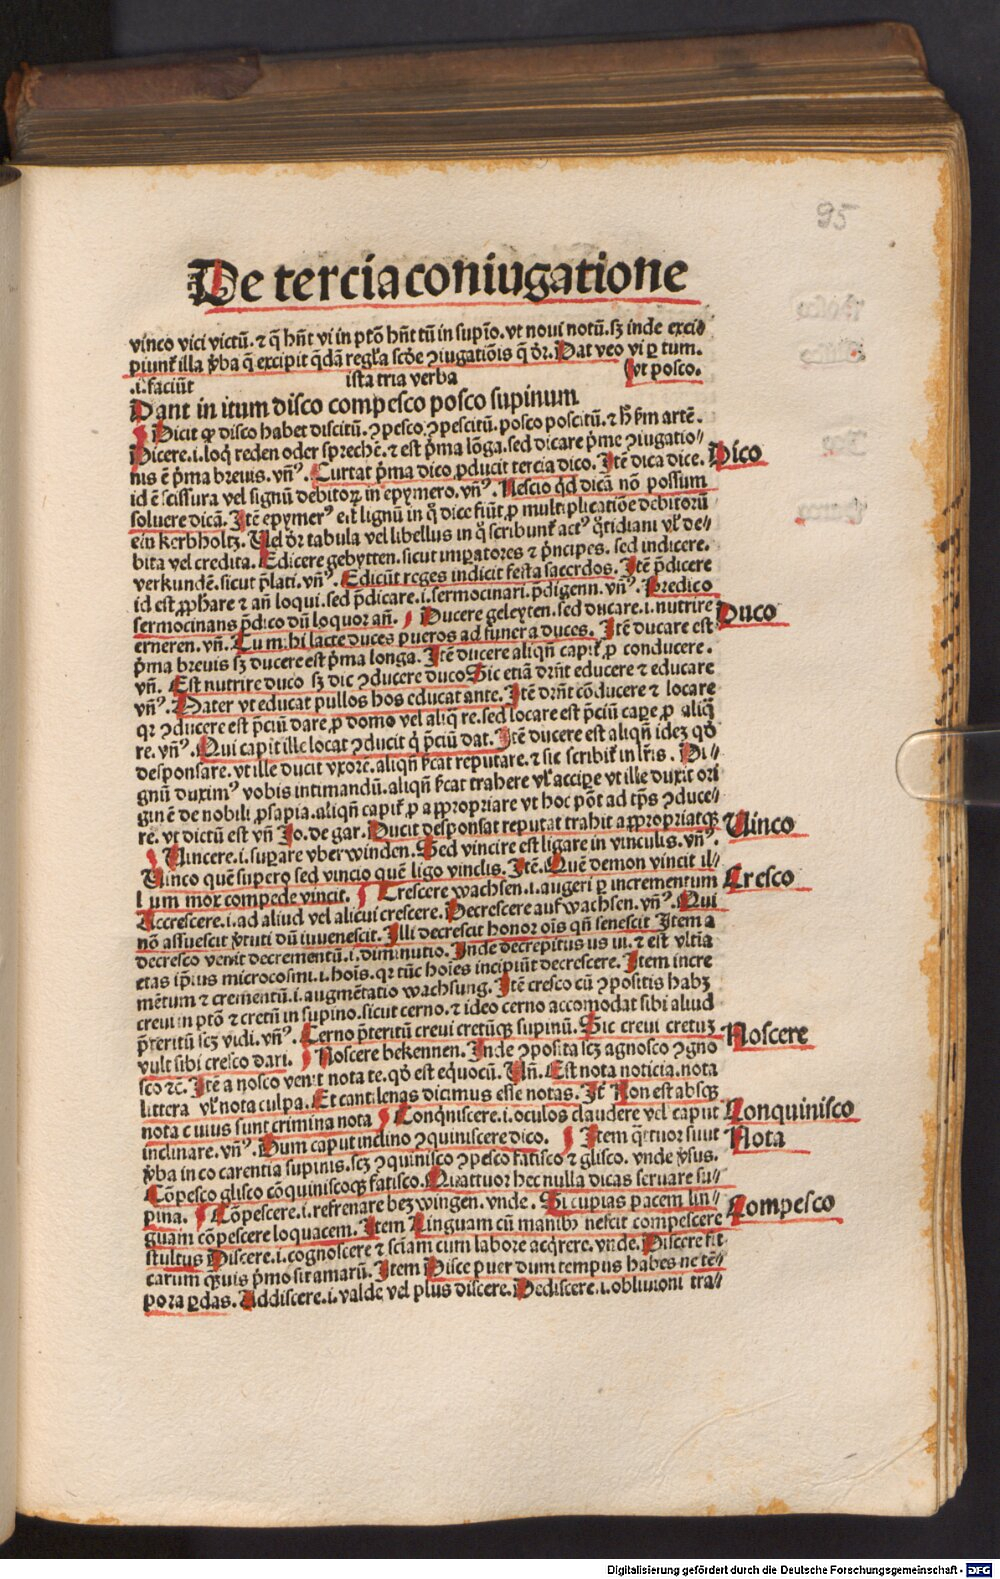 95
De tercia coniugatione
vinco vici victū. ⁊ q̄ hn̄t vi in ptō hn̄t tū in supīo. vt noui notū. sꝫ inde exci⸗
piunt᷑ illa ꝟba q̄ excipit q̄dā regl̓a scd̓e ↄiugatiōis q̄ dr̄. Dat veo vi ꝑ tum.
.i. faciūt ista tria verba vt posco.
Dant in itum disco compesco posco supinum
Dicit ꝙ disco habet discitū. ↄpesco ↄpescitū. posco poscitū. ⁊ h̓ ẜm artē.
Dicere .i. loq̄ reden oder sprechē. ⁊ est p̄ma lōga. sed dicare p̄me ↄiugatio⸗ Dico
nis ē p̄ma breuis. vn̄ꝰ. Curtat p̄ma dico ꝓducit tercia dico. Itē dica dice.
id ē scissura vel signū debitoꝝ in epymero. vn̄ꝰ. Nescio qd̓ dicā nō possum
soluere dicā. Itē epymerꝰ est lignū in q̄ dice fiūt ꝓ multiplicatiōe debitorū
ein kerbholtz. Vel dr̄ tabula vel libellus in q̄ scribunt᷑ actꝰ q̄tidiani vl̓ de⸗
bita vel credita. Edicere gebytten. sicut imꝑatores ⁊ p̄ncipes. sed indicere.
verkundē. sicut p̄lati. vn̄ꝰ. Edicūt reges indicit festa sacerdos. Itē p̄dicere
id est ꝓphare ⁊ an̄ loqui. sed p̄dicare .i. sermocinari. p̄digenn. vn̄ꝰ. Predico
sermocinans p̄dico dū loquor an̄. Ducere geleyten. sed ducare .i. nutrire Duco
erneren. vn̄. Tum. hi lacte duces pueros ad funera duces. Itē ducare est
p̄ma breuis sꝫ ducere est p̄ma longa. Itē ducere aliqn̄ capit᷑ ꝓ conducere.
vn̄. Est nutrire duco sꝫ dic ↄducere duco. Sic etiā drn̄t educere ⁊ educare
vn̄ꝰ. Pater vt educat pullos hos educat ante. Itē drn̄t cōducere ⁊ locare
qꝛ ↄducere est p̄ciū dare ꝓ domo vel aliq̄ re. sed locare est p̄ciū caꝑe ꝓ aliq̄
re. vn̄ꝰ. Qui capit ille locat ↄducit q̓ p̄ciū dat. Itē ducere est aliqn̄ ideꝫ qd̓
desponsare. vt ille ducit vxorē. aliqn̄ ẜcat reputare. ⁊ sic scribit᷑ in lr̄is. Di⸗
gnū duximꝰ vobis intimandū. aliqn̄ ẜcat trahere vl̓ acciꝑe vt ille duxit ori
ginē de nobili ꝓsapia. aliqn̄ capit᷑ ꝓ aꝓpropriare vt hoc pōt ad tp̄s ↄduce⸗
re. vt dictū est vn̄ Io. de gar. Ducit desponsat reputat trahit aꝓpropriatqꝫ
Vincere .i. suꝑare vberwinden. Sed vincire est ligare in vinculis. vn̄ꝰ. Vinco
Vinco quē supero sed vincio quē ligo vinclis. Itē. Quē demon vincit il⸗
lum mox compede vincit. Crescere wachsen .i. augeri ꝑ incrementum Cresco
Accrescere .i. ad aliud vel alicui crescere. Decrescere auf wachsen. vn̄ꝰ. Qui
nō assuescit ꝟtuti dū iuuenescit. Illi decrescit honor ois qn̄ senescit Item a
decresco venit decrementū .i. diminutio. Inde decrepitus us ui. ⁊ est vltīa
etas ip̄ius microcosmi .i. hoīs. qꝛ tūc hoīes incipiūt decrescere. Item incre
mētum ⁊ crementū .i. augmētatio wachsung. Itē cresco cū ↄpositis habꝫ
creui in ptō ⁊ cretū in supino. sicut cerno. ⁊ ideo cerno accomodat sibi aliud
p̄teritū scꝫ vidi. vn̄ꝰ. Cerno p̄teritū creui cretūqꝫ supinū. Sic creui cretuꝫ
vult sibi cresco dari. Noscere bekennen. Inde ↄposita scꝫ agnosco ↄgno Noscere
sco ⁊c. Itē a nosco venit nota te. qd̓ est equocū. Vn̄. Est nota noticia. nota
littera vl̓ nota culpa. Et cantilenas dicimus esse notas. Itē Non est absqꝫ
nota cuius sunt crimina nota Conq̄niscere .i. oculos claudere vel caput Conquinisco
inclinare. vn̄ꝰ. Dum caput inclino ↄquiniscere dico. Item q̄ttuor sunt Nota
ꝟba in co carentia supinis. scꝫ ↄquinisco ↄpesco fatisco ⁊ glisco. vnde ꝟsus.
Cōpesco glisco cōquiniscoqꝫ fatisco. Quattuor hec nulla dicas seruare su⸗
pina. Cōpescere .i. refrenare bezwingen. vnde. Si cupias pacem lin⸗ Compesco
guam cōpescere loquacem. Item Linguam cū manibꝰ nescit compescere
stultus Discere .i. cognoscere ⁊ sciam cum labore acq̄rere. vnde. Discere fit
carum q̄uis p̄mo sit amarū. Item Disce puer dum tempus habes ne tē⸗
pora ꝑdas. Addiscere .i. valde vel plus discere. Dediscere .i. obliuioni tra⸗
Digitalisierung gefördert durch die Deutsche Forschungsgemeinschaft - DFG